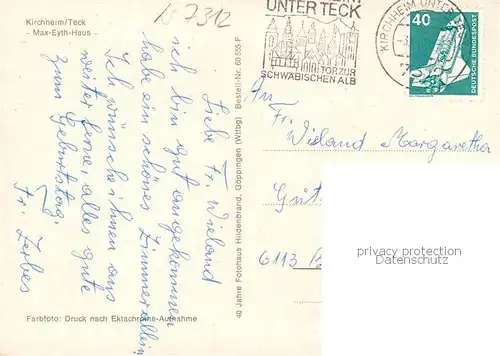 Kirchheim/Teck
- Max-Eyth-Haus -
N 7312
UNTER TECK
TOR ZUR
SCHWÄBISCHEN ALB
KIRCHHEIM UNTER
40
DEUTSCHE BUNDESPOST
Liebe Fr. Wieland
ich bin gut angekommen
habe ein schönes Zimmer allein,
Ich wünsche ihnen aus
weiter Ferne, alles gute
zum Geburtstag.
Fr. Zerbes
40 Jahre Fotohaus Hildenbrand, Göppingen (Wttbg) Bestell-Nr. 60 555 F
An
Fr. Wieland Margaretha
6113
privacy protection
Datenschutz
Farbfoto: Druck nach Ektachrome-Aufnahme